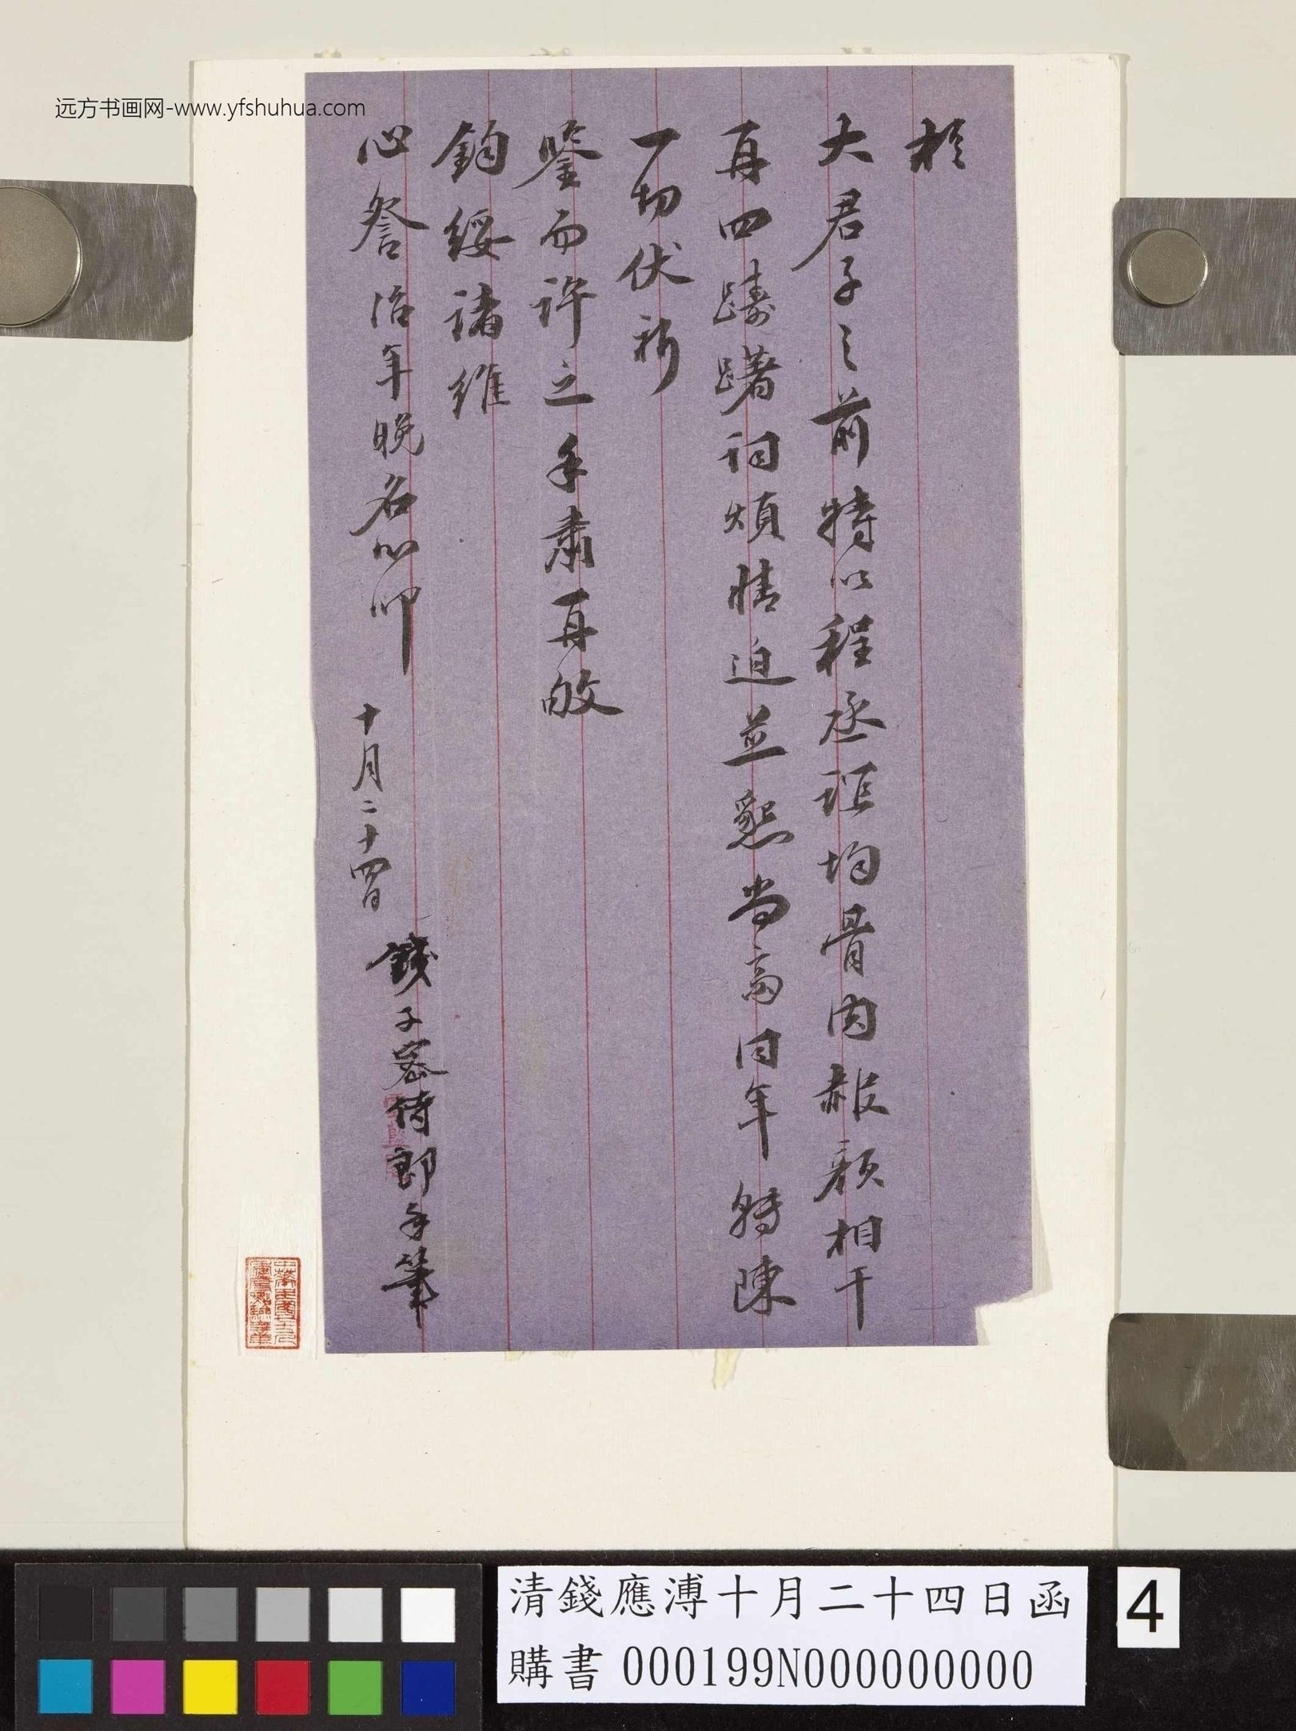 远方书画网-www.yfshuhua.com
於
大君子之前特以程丞誼均骨肉赧顏相干
再四躊躇詞煩情迫並懇尚齋同年轉陳
一切伏祈
鑒而許之手肅再敂
鈞綏諸維
心詧治年晚名心叩
十月二十四日
錢子密侍郎手筆
清錢應溥十月二十四日函
購書 000199N000000000
4